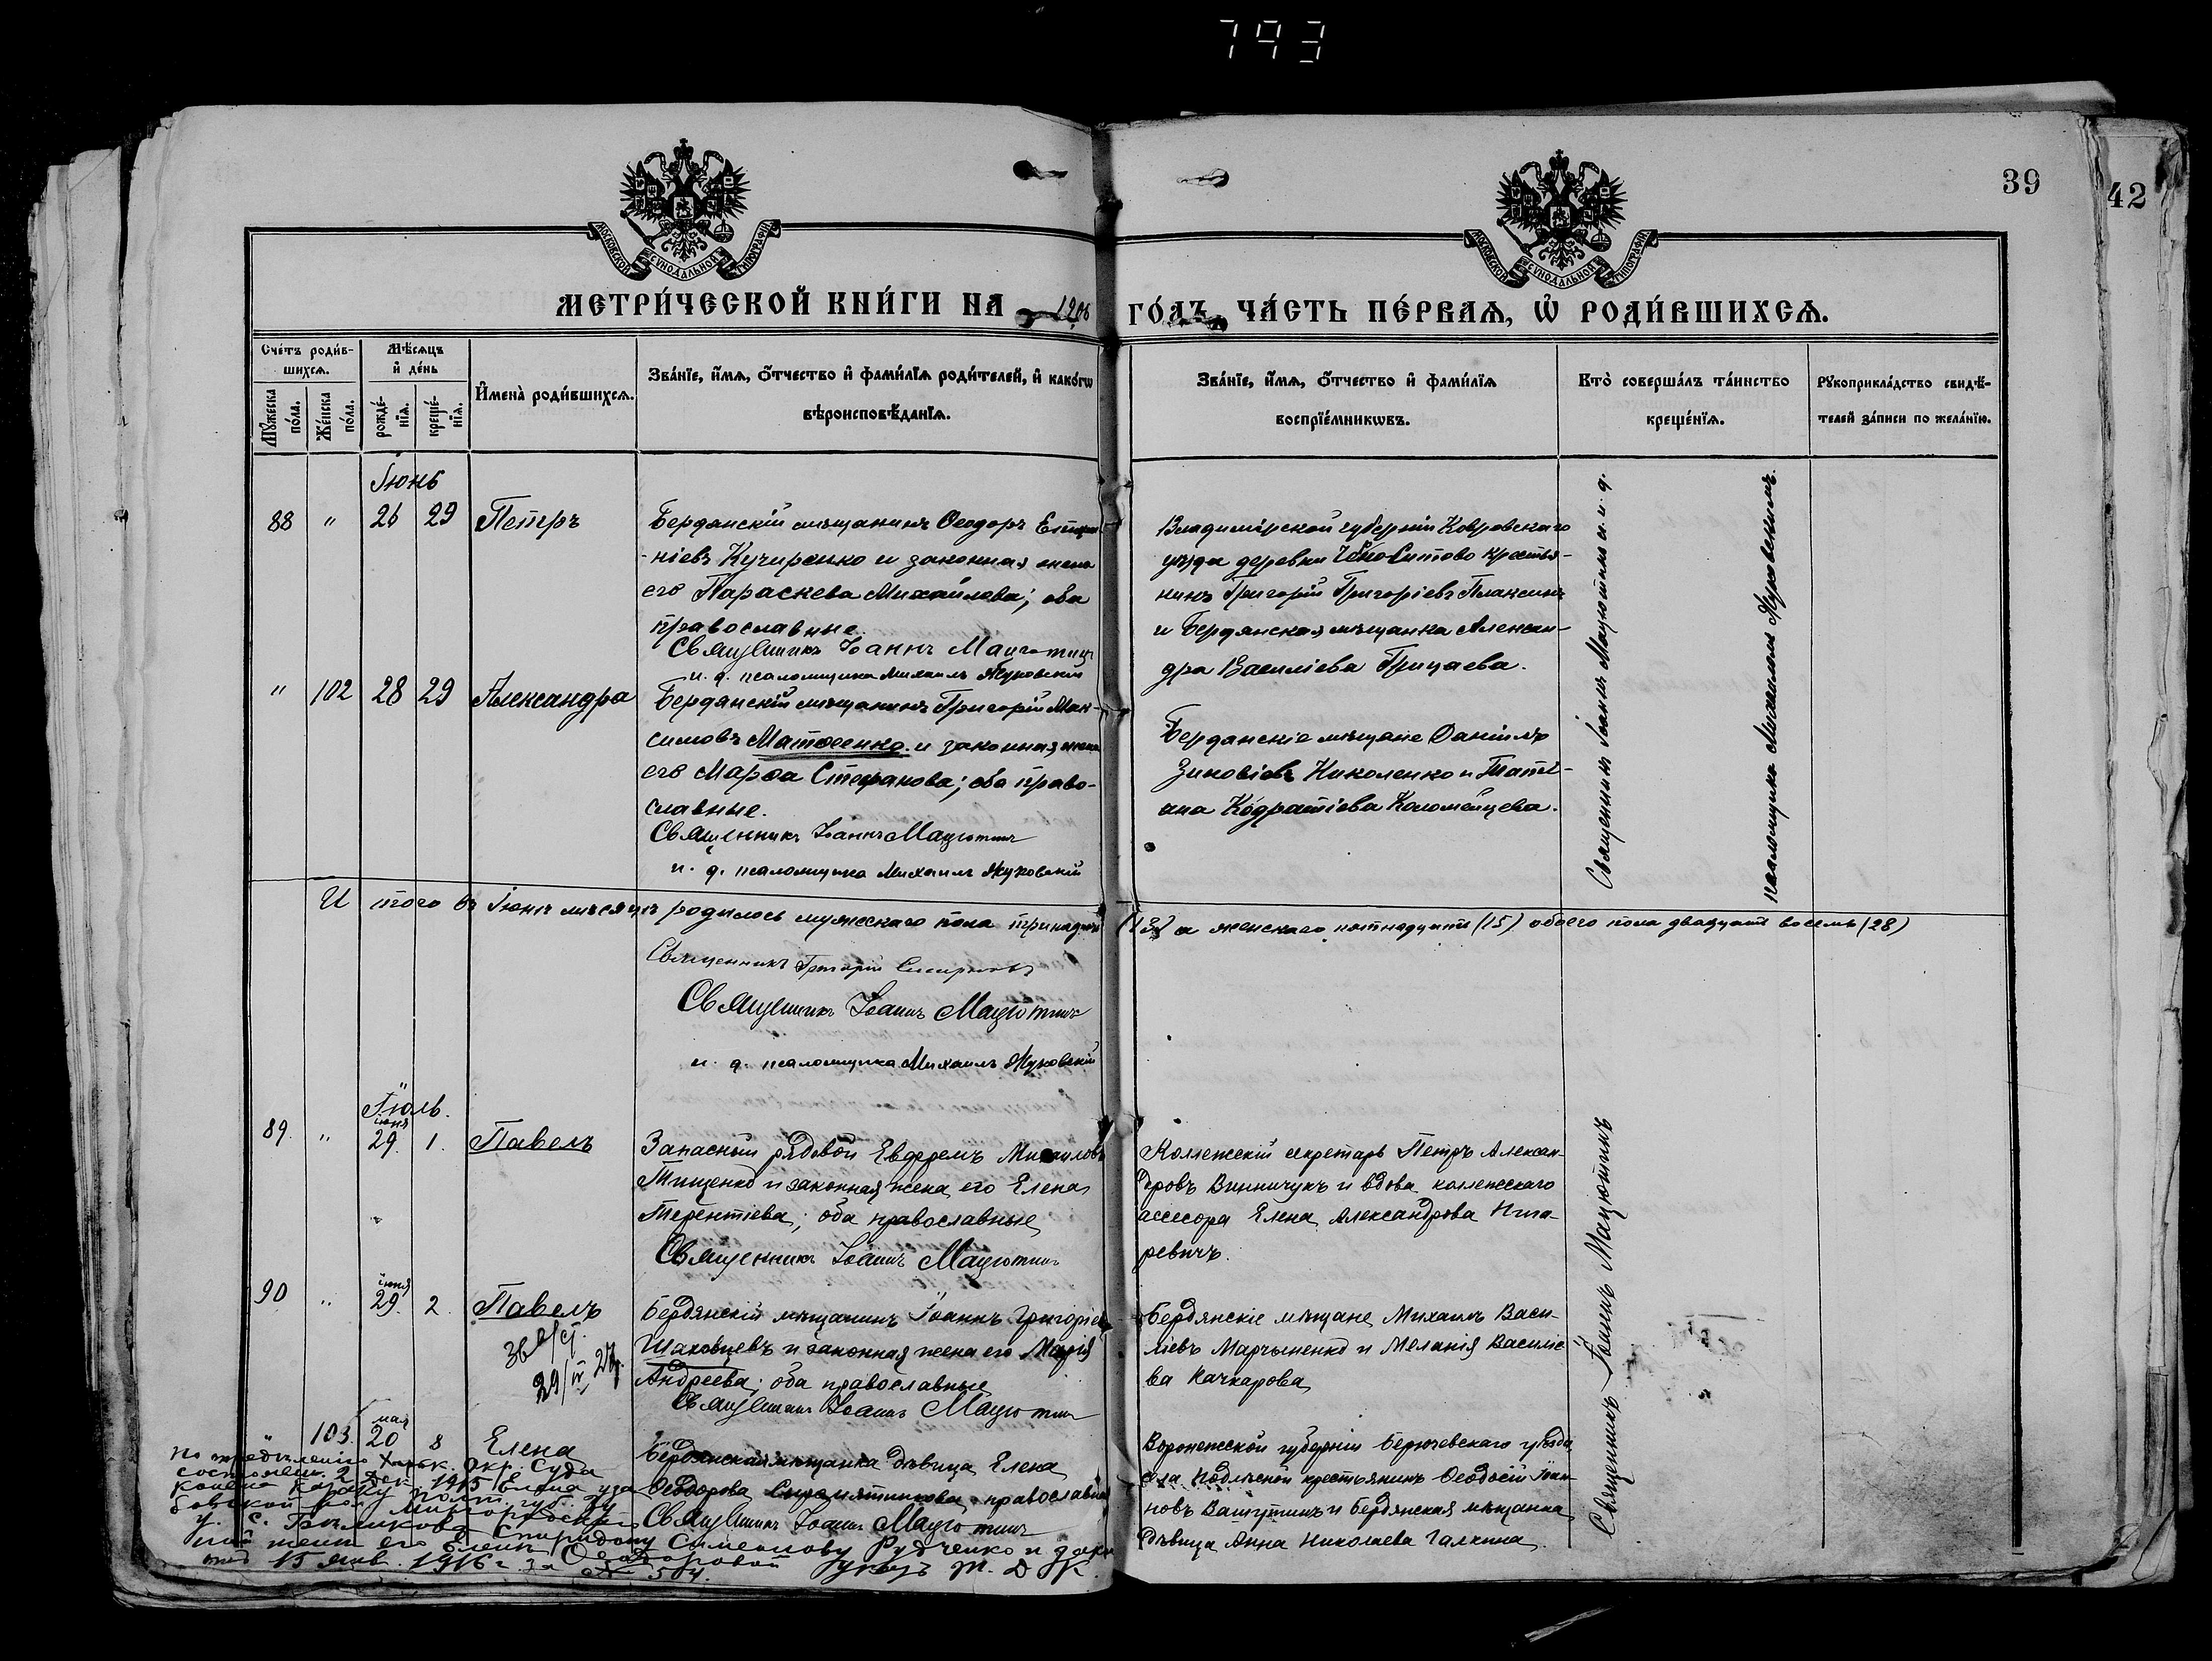 793
39
42
МОСКОВСКОЙ СѴНОДАЛЬНОЙ ТИПОГРАФІИ
МОСКОВСКОЙ СѴНОДАЛЬНОЙ ТИПОГРАФІИ
МЕТРИ́ЧЕСКОЙ КНИ́ГИ НА 1906 ГО́ДЪ, ЧА́СТЬ ПЕ́РВАѦ, Ѽ РОДИ́ВШИХСѦ.
Сче́тъ роди́в-
шихсѧ.
Мѣ́сѧцъ
и҆ де́нь
Мꙋжеска по́ла.
Же́нска по́ла.
рожде́-
нїѧ.
креще́-
нїѧ.
И҆мена̀ роди́вшихсѧ.
Зва́нїе, и҆́мѧ, ѻ҆́тчество и҆ фами́лїѧ роди́телей, и҆ како́гѡ
вѣроисповѣ́данїѧ.
Зва́нїе, и҆́мѧ, ѻ҆́тчество и҆ фами́лїѧ
воспрїе́мникѡвъ.
Кто̀ соверша́лъ та́инство
креще́нїѧ.
Рꙋкоприкла́дство свидѣ́-
телей за́писи по жела́нїю.
Іюнь
88 " 26 29 Петръ
Бердянскій мѣщанинъ Ѳеодоръ
-ніевъ Кучиренко и законная жена
его Параскева Михайлова; оба
православные.
Священникъ Іоаннъ Мацютинъ
и. д. псаломщика Михаилъ Жуковскій
Владимірской губерніи Ковровскаго
уѣзда деревни крестья-
нинъ Григорій Григоріевъ Плаксинъ
и Бердянская мѣщанка Алексан-
дра Василіева Грицаева.
" 102 28 29 Александра
Бердянскій мѣщанинъ Григорій Мак-
симовъ Матвеенко и законная жена
его Марѳа Стефанова; оба право-
славные.
Священникъ Іоаннъ Мацютинъ
и. д. псаломщика Михаилъ Жуковскій
Бердянскіе мѣщане Даніилъ
Зиновіевъ Николенко и Таті-
ана Кодратіева Коломейцева.
Священникъ Іоаннъ Мацютинъ и. д.
псаломщика Михаилъ Жуковскій
Итого въ Іюнѣ мѣсяцѣ родилось мужескаго пола тринадцать (13) а женскаго пятнадцать (15) обоего пола двадцать восемь (28)
Священникъ Григорій
Священникъ Іоаннъ Мацютинъ
и. д. псаломщика Михаилъ Жуковскій
Іюль.
іюня
89. " 29. 1. Павелъ
Запасный рядовой Евфремъ Михаиловъ
Тищенко и законная жена его Елена
Терентіева; оба православные
Священникъ Іоаннъ Мацютинъ
Коллежскій секретарь Петръ Алексан-
дровъ Винничукъ и вдова коллежскаго
ассесора Елена Александрова
ревичъ.
іюня
90 " 29. 2. Павелъ
29/IV 27
Бердянскій мѣщанинъ Іоаннъ Григоріевъ
Шаковцевъ и законная жена его Марія
Андреева; оба православные
Священникъ Іоаннъ Мацютинъ
Бердянскіе мѣщане Михаилъ Васи-
ліевъ Марченко и Меланія Василіе-
ва Качкарова
мая
" 103. 20 8 Елена
Бердянская мѣщанка дѣвица Елена
Ѳеодорова Сыромятникова, православная
Священникъ Іоаннъ Мацютинъ
Воронежской губерніи Бирюченскаго уѣзда
села Подлѣсной крестьянинъ Ѳеодосій Іоан-
новъ Вашутинъ и Бердянская мѣщанка
дѣвица Анна Николаева Галкина.
Священникъ Іоаннъ Мацютинъ
По опредѣленію Харьк. Окр. Суда
состоявш. 2 Дек. 1915 Елена
Полт. губ.
Миргородскаго
у. с. Спиридону Симеонову Рудченко и
женѣ его Еленѣ Ѳеодоровой Указъ Т. Д. К.
отъ 15 янв. 1916 г. за № 504.